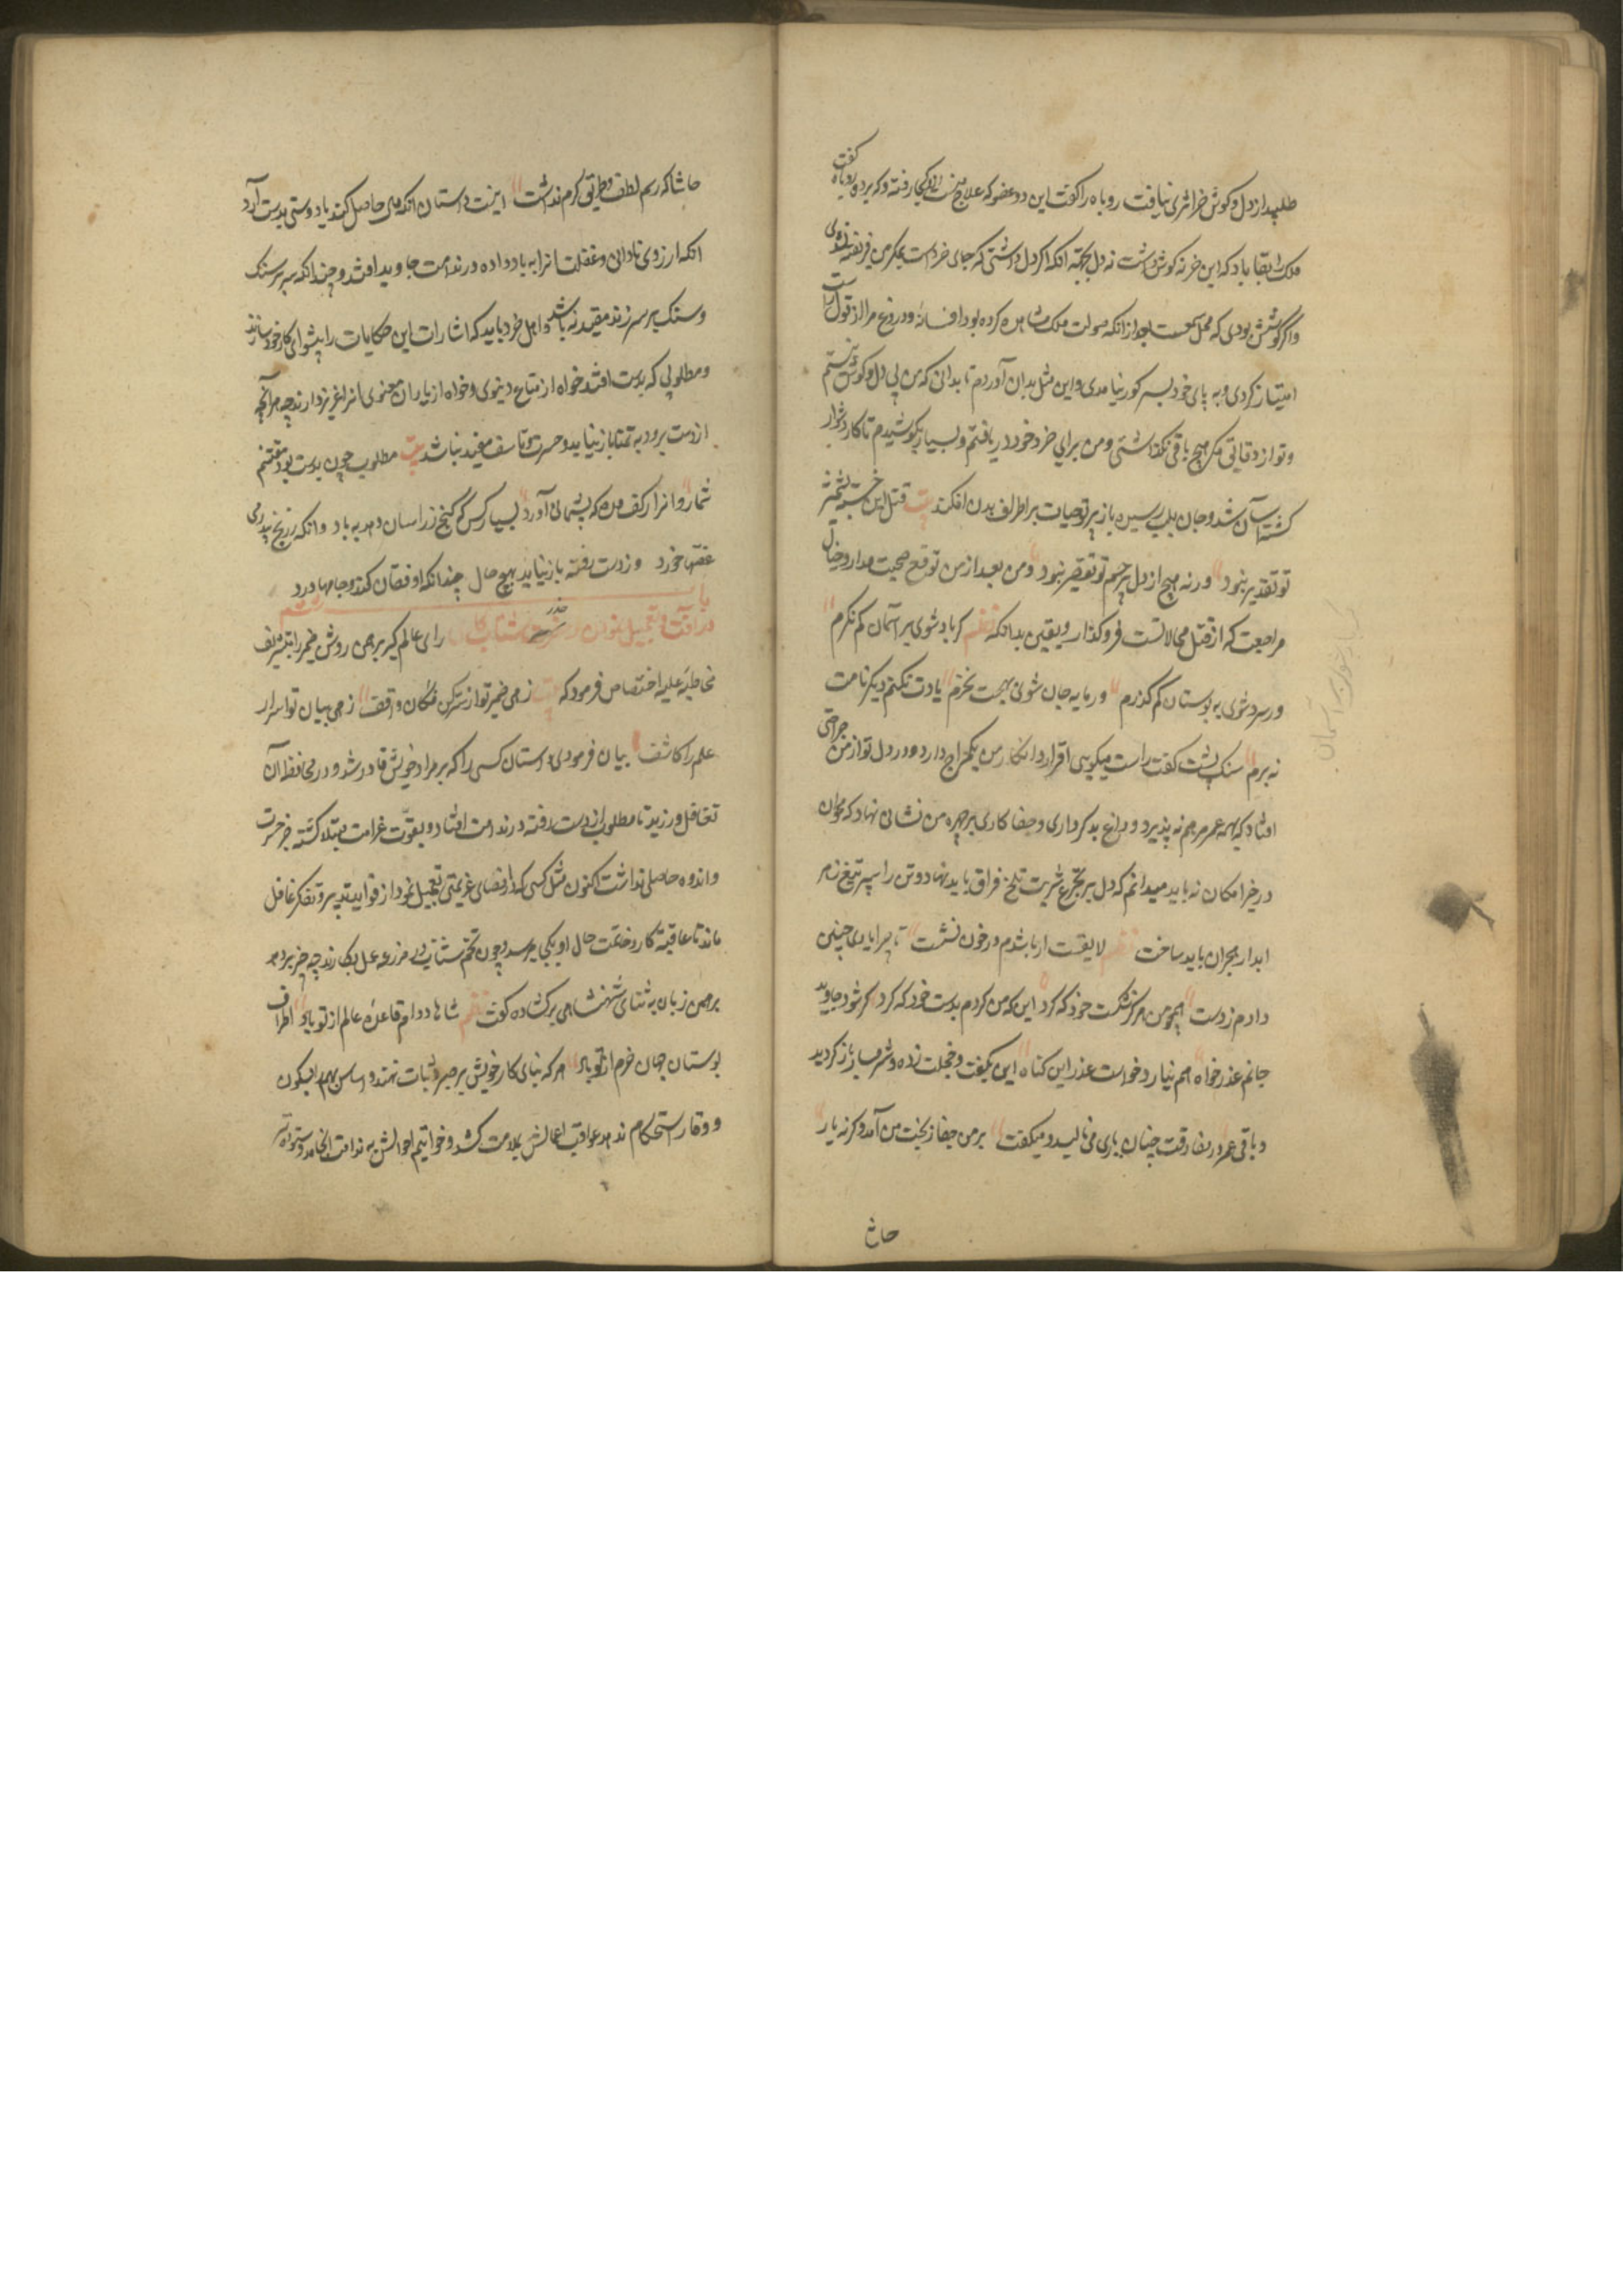 طلبید از دل و گوش خر اثری نیافت روباه را گفت این دو عضو که علاج منست کجا رفته و که برد روباه گفت
ملک را بقا باد که این خر نه گوش داشت نه دل بجهة آنکه اگر دل داشتی که جای خرد است بمکر من فریفته نشدی
واگر گوشش بودی که محل سمعست بعد از آنکه صولت ملک مشاهده کرده بود افسانه دروغ مرا از قول راست
امتیاز کردی و به پای خود بسر کور نیامدی و این مثل بدان آوردم تا بدانی که من بی دل و گوش نیستم
و تو از دقایق مکر هیچ باقی نگذاشتی و من برای خرد خود دریافتم و بسیار بکوشیدم تا کار دشوار
گشته آسان شد و جان بلب رسیده باز پرتو حیات بر اطراف بدن افکند بیت قتل این خسته بشمشیر
تو تقدیر نبود ورنه هیچ از دل بی رحم تو تقصیر نبود و من بعد از من توقع صحبت مدار و خیال
مراجعت که از قبیل محالاتست فروگذار و یقین بدانکه نظم گر باد شوی بر آسمان کم نگرم
ور سرو شوی به بوستان کم گذرم ور مایه جان شوی بهیچت نخرم یادت نکنم دیگر نامت
نه برم سنگ پشت گفت راست میگویی اقرار و انکار من یکمزاج دارد و در دل تو از من جراحتی
افتاد که همه عمر مرهم نه پذیرد و داغ بدکرداری و جفاکاری بر چهره من نشانی نهاد که محو آن
در خیز امکان نه باید میدانم که دل بر تجرع شربت تلخ فراق باید نهاد و تن را سپر تیغ زهر
ابدار هجران باید ساخت نظم لایقست ار باشدم در خون نشست تا چرا یاری چنین
دادم ز دست همچو من هرگز شکست خود که کرد این که من کردم بدست خود که کرد گر شود جاوید
جانم عذر خواه هم نیارد خواست عذر این گناه این بگفت و خجلت زده و شرمسار باز گردید
و باقی عمر در مفارقت چنان یاری می نالید و میگفت بر من جفا ز بخت من آمد وگرنه یار
حاشا
حاشا که رسم لطف و طریق کرم نداشت اینست داستان آنکه مالی حاصل کند یا دوستی بدست آرد
آنکه از روی نادانی و غفلت آنرا به باد داده در ندامت جاوید افتد و چندانکه سر بر سنگ
و سنگ بر سر زند مفید نه باشد و اهل خرد باید که اشارات این حکایات را پیشوای کار خود سازند
و مطلوبی که بدست افتد خواه از متاع دنیوی و خواه از یاران معنوی آنرا عزیز دارند چه هر آنچه
از دست برود به تمنا باز نیاید و حسرت و تاسف مفید نباشد بیت مطلوب چون بدست بود مغتنم
شمار و آنرا ز کف مده که پشیمانی آورد بسیار کس که گنج زر آسان دهد به باد وانگه ز رنج بی درمی
غصه خورد وز دست رفته باز نیاید بهیچ حال چندانکه او فغان کند و جامها درد
باب ششم
در آفت و تعجیل نمودن و ضرر شتاب کاری رای عالم گیر برهمن روشن ضمیر را بتشریف
مخاطبهٔ علیه اختصاص فرمود که بیت زهی ضمیر تو از سر کن فکان واقف زهی بیان تو اسرار
علم را کاشف بیان فرمودی داستان کسی را که بر مراد خویش قادر شد و در محافظت آن
تغافل ورزید تا مطلوب از دست رفته در ندامت افتاد و بعقوبت غرامت مبتلا گشته جز حسرت
و اندوه حاصلی نداشت اکنون مثل کسی که در امضای عزیمتی تعجیل نمود از فواید تدبر و تفکر غافل
ماند تا عاقبة کار و خاتمت حال او بکجا می رسد و چون تخم شتاب در مزرعه عمل بکارند چه چیز بر دهد
برهمن زبان به ثنای شهنشاهی برگشاده گفت نظم شاها دوام قاعدهٔ عالم از تو باد اطراف
بوستان جهان خرم از تو باد هر که بنای کار خویش بر صبر و ثبات ننهد و اساس مهم را بسکون
و وقار استحکام ندهد عواقب اعمالش بملامت کشد و خواتیم احوالش به ندامت انجامد و ستوده تر